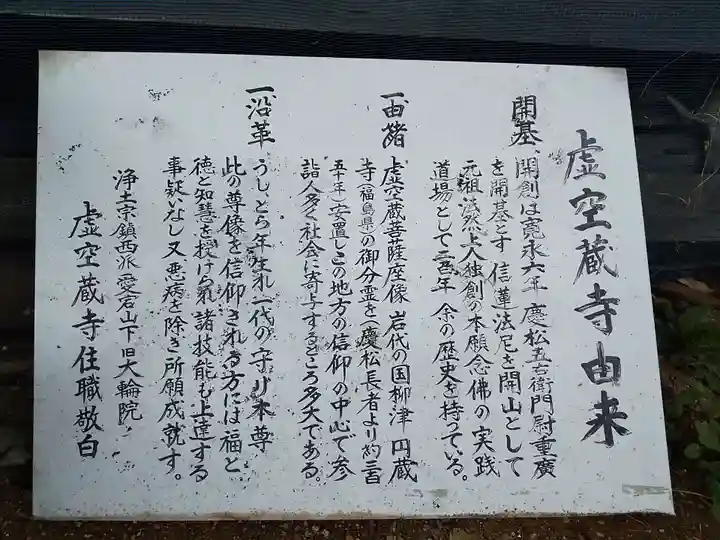 虚空蔵寺由来
開基、開創は寛永六年 慶松五右衛門尉重廣
を開基とす 信蓮法尼を開山として
元祖法然上人独創の本願念佛の実践
道場として三百年 余の歴史を持っている。
一由緒 虚空蔵菩薩座像 岩代の国柳津 円蔵
寺(福島県)の御分霊を(慶松長者より約三百
五十年)安置しこの地方の信仰の中心で参
詣人多く社会に寄与するところ多大である。
一沿革 うし、とら年生れ一代の守り本尊
此の尊像を信仰される方には福と
徳と知慧を授けられ諸技能も上達する
事疑いなし 又悪病を除き所願成就す。
浄土宗鎮西派愛宕山下旧大輪院
虚空蔵寺住職敬白